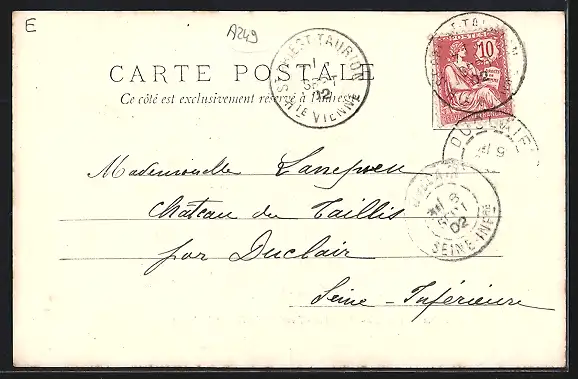 E
A249
ST PRIEST TAURION
1
SEPT
02
HTE VIENNE
POSTES
10
RÉPUBLIQUE FRANÇAISE
02
CARTE POSTALE
Ce côté est exclusivement réservé à l'adresse
DUCLAIR
9
Mademoiselle
Château du Taillis
par Duclair
Seine-Inférieure
DUCLAIR
3
SEPT
02
SEINE-INFRE